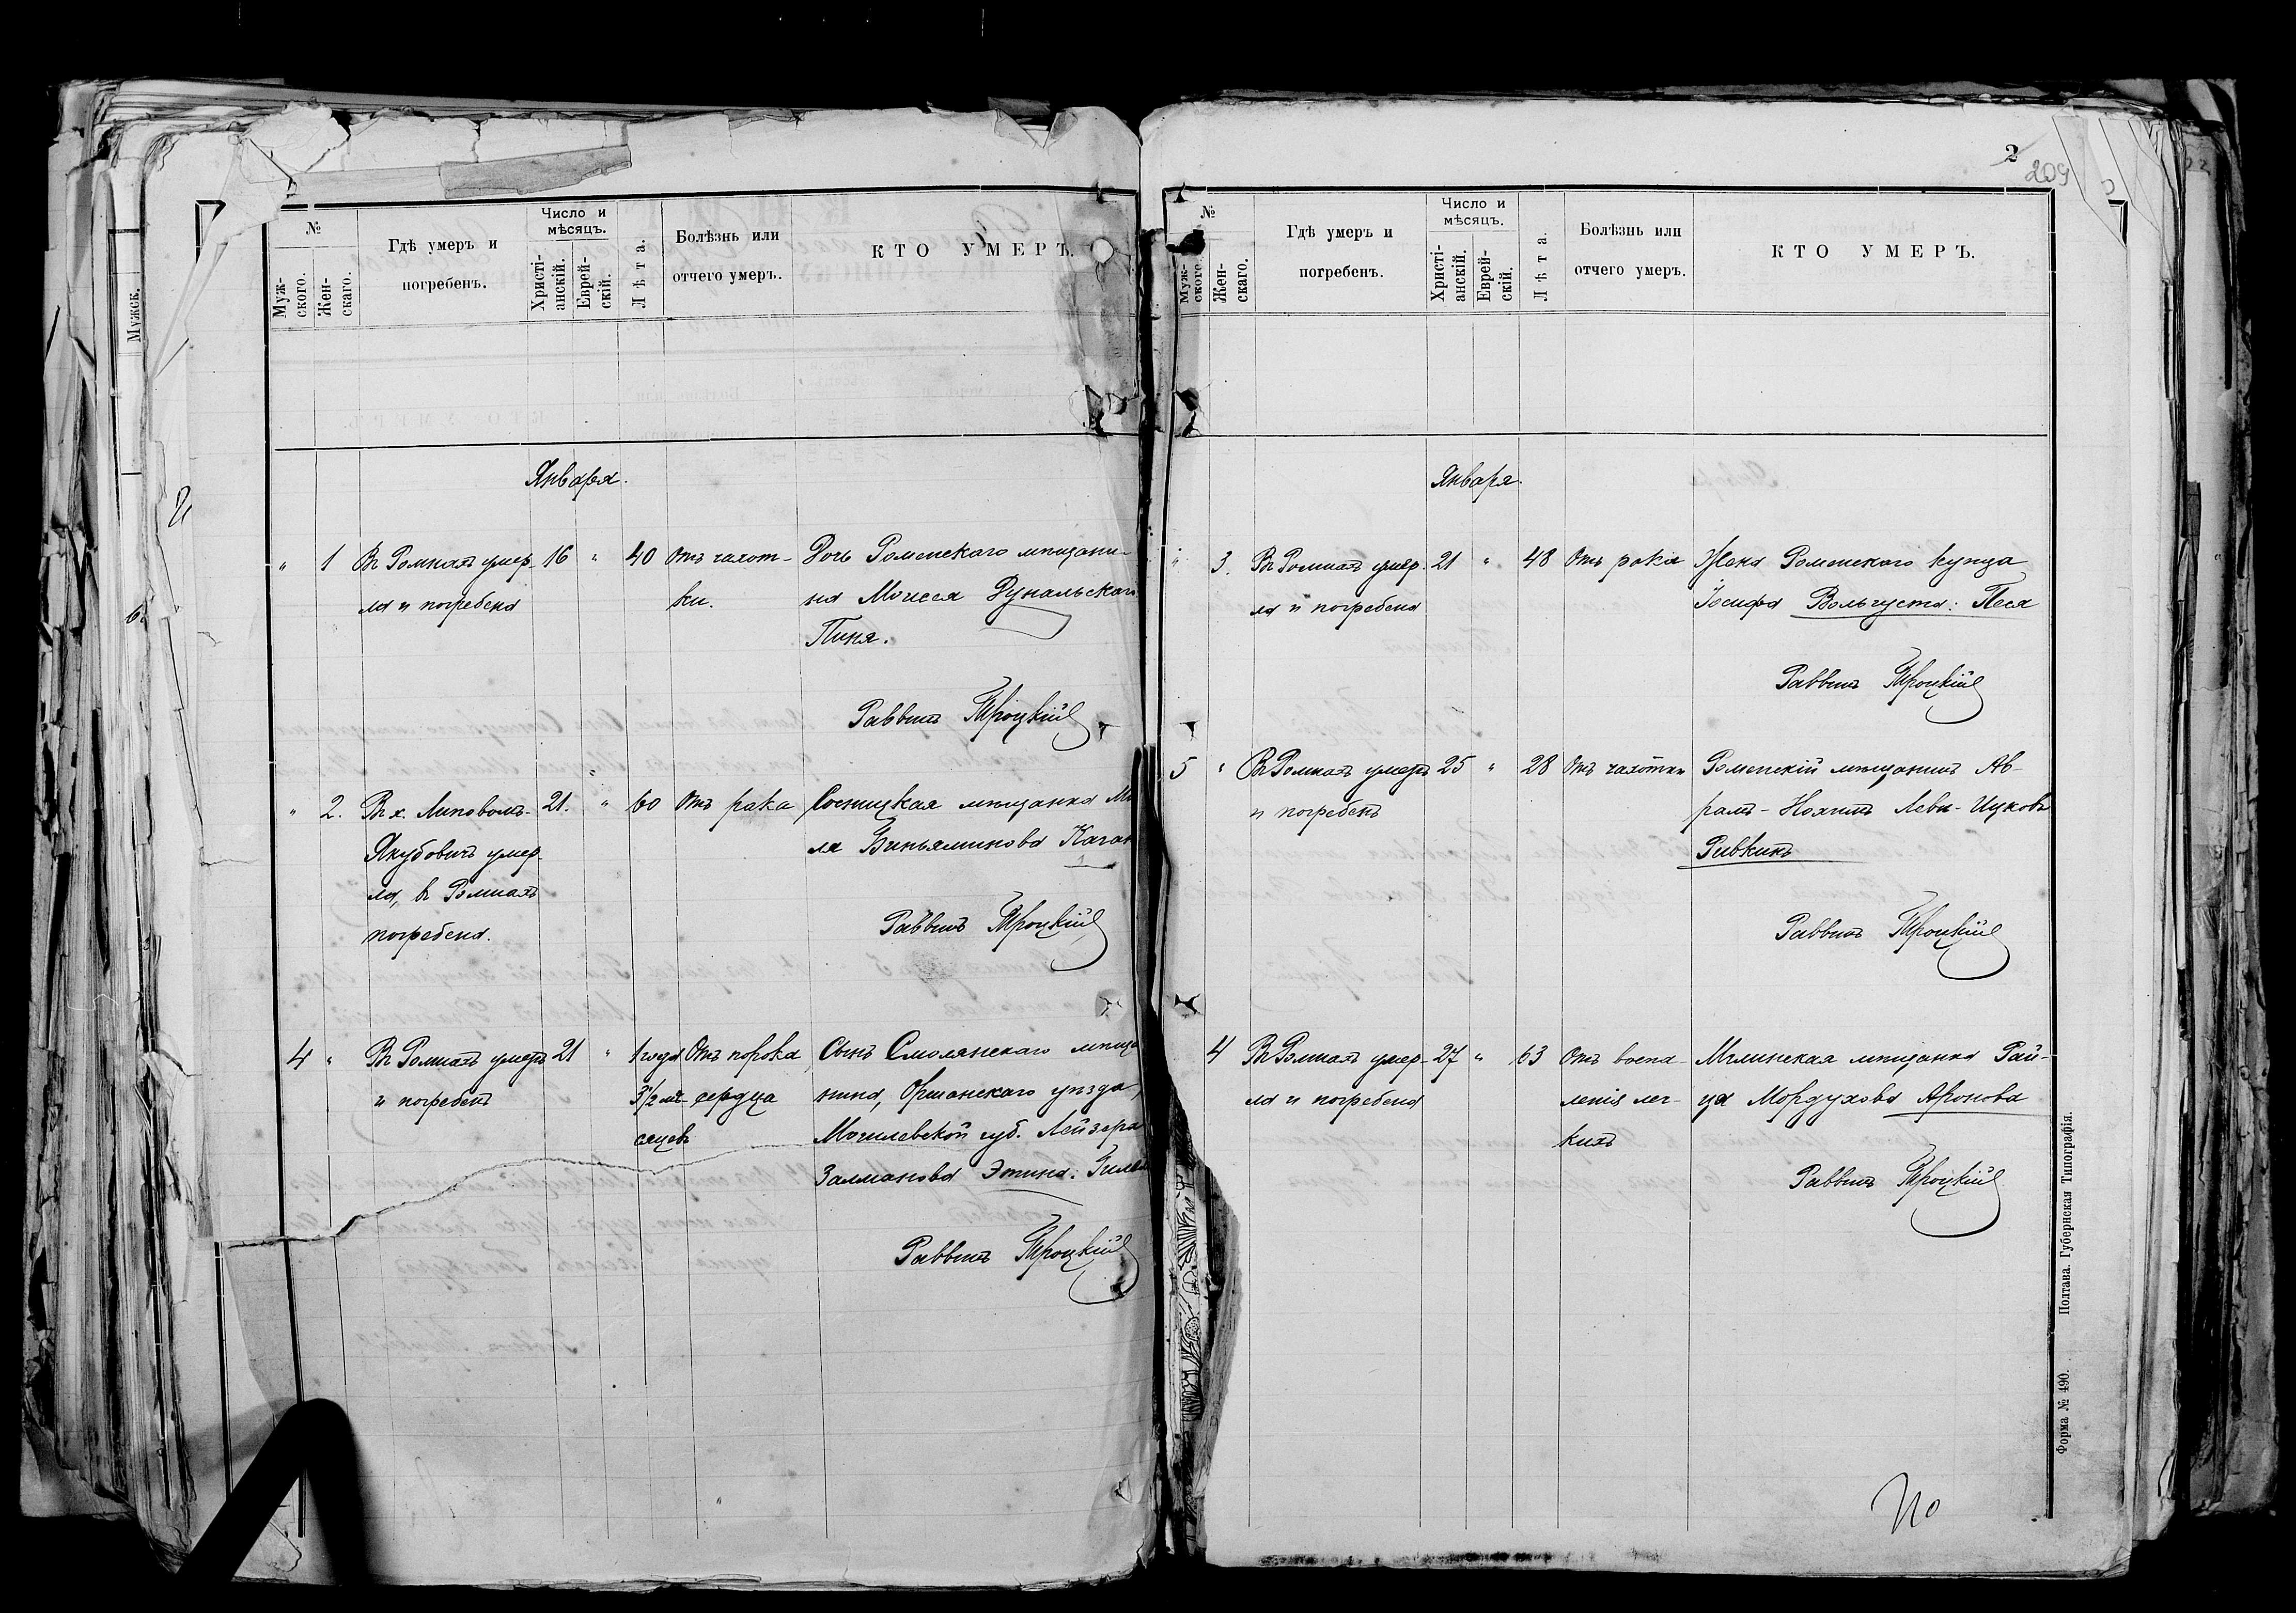 №
Муж-
ского.
Жен-
скаго.
Гдѣ умеръ и
погребенъ.
Число и
мѣсяцъ.
Христі-
анскій.
Еврей-
скій.
Лѣта.
Болѣзнь или
отчего умеръ.
КТО УМЕРЪ.
Января.
" 1 Въ Ромнахъ умер- 16 " 40 Отъ чахот- Дочь Роменскаго мѣщани-
ла и погребена ки. на Моисея Дунальскаго
Пиня.
Раввинъ Троцкій
" 2. Въ х. Липовомъ- 21. " 60 Отъ рака Сосницкая мѣщанка
Якубовичъ умер- ля Биньяминова Каган
ла, въ Ромнахъ
погребена.
Раввинъ Троцкій
4 " Въ Ромнахъ умеръ 21 " 1 года Отъ порока Сынъ Смолянскаго мѣща
и погребенъ 3½ мѣ- сердца нина, Оршанскаго уѣзда,
сяцевъ Могилевской губ. Лейзера
Залманова Этина:
Раввинъ Троцкій
Мужск.
2
209
№
Муж-
ского.
Жен-
скаго.
Гдѣ умеръ и
погребенъ.
Число и
мѣсяцъ.
Христі-
анскій.
Еврей-
скій.
Лѣта.
Болѣзнь или
отчего умеръ.
КТО УМЕРЪ.
Января.
" 3. Въ Ромнахъ умер- 21 " 48 Отъ рака Жена Роменскаго купца
ла и погребена Іосифа Вольгуста: Песя
Раввинъ Троцкій
5 " Въ Ромнахъ умеръ 25 " 28 Отъ чахотки Роменскій мѣщанинъ Ав-
и погребенъ рамъ-Нохимъ Леви-Ицковъ
Ривкинъ
Раввинъ Троцкій
4 Въ Ромнахъ умер- 27 " 63 Отъ воспа- Мглинская мѣщанка Рай-
ла и погребена ленія лег- ца Мордухова Аронова
кихъ
Раввинъ Троцкій
Форма № 490. Полтава. Губернская Типографія.